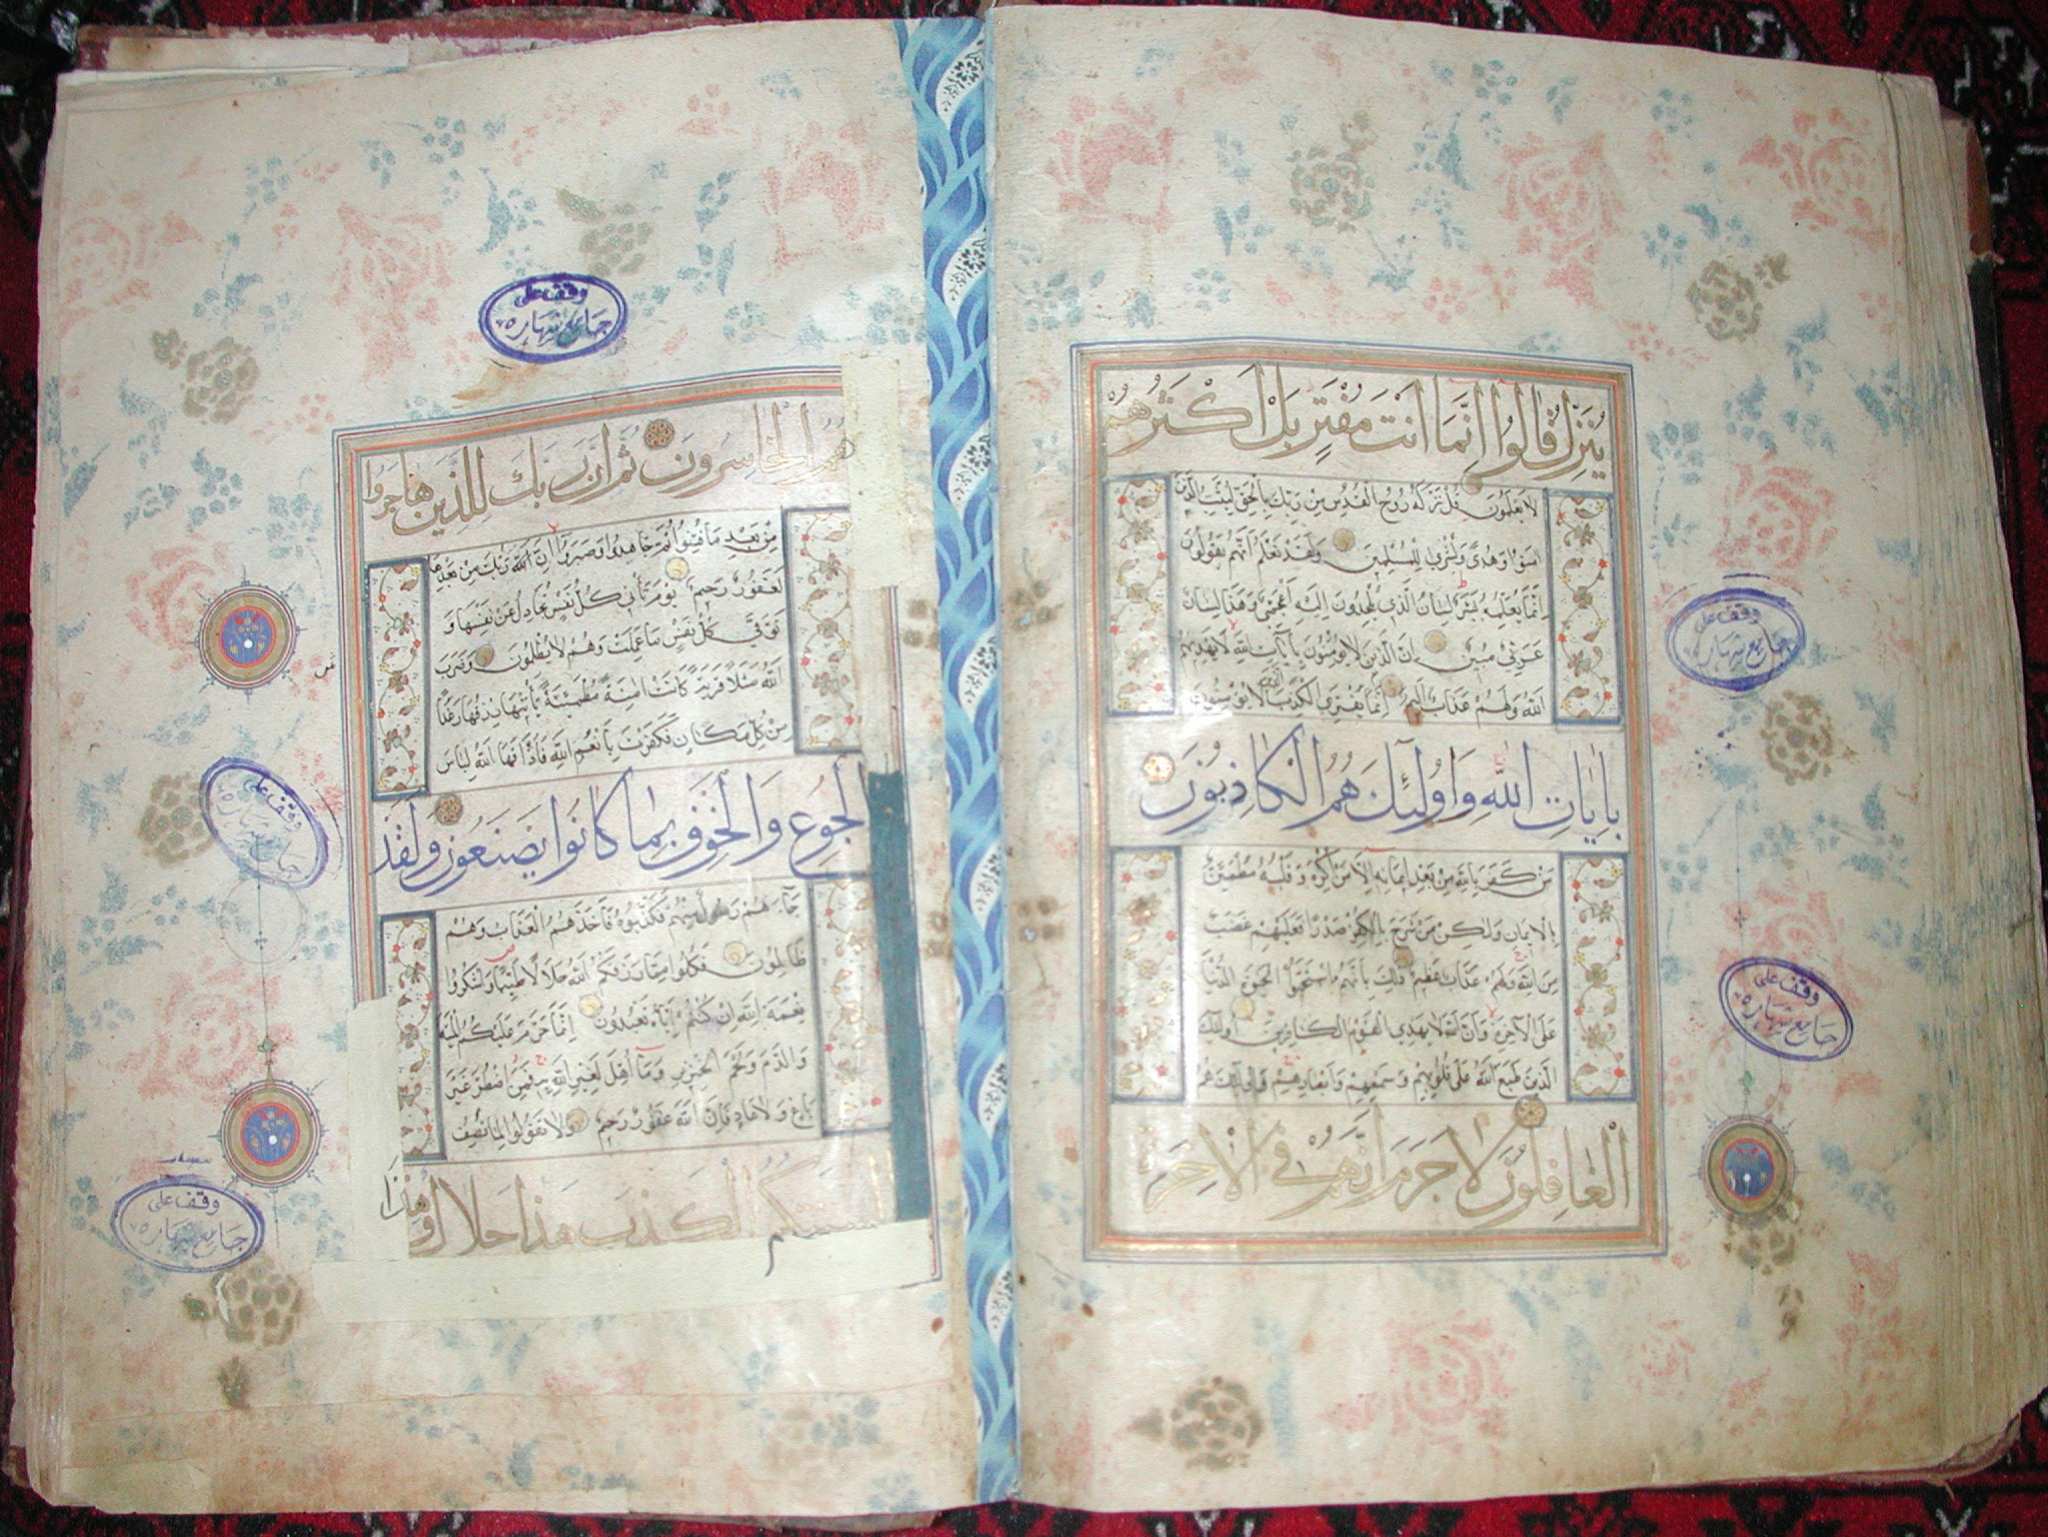 يُنَزِّلُ قَالُوا اِنَّمَا اَنْتَ مُفْتَرٍ بَلْ اَكْثَرُهُمْ
لَا يَعْلَمُونَ قُلْ نَزَّلَهُ رُوحُ الْقُدُسِ مِنْ رَبِّكَ بِالْحَقِّ لِيُثَبِّتَ الَّذِينَ
اٰمَنُوا وَهُدًى وَبُشْرٰى لِلْمُسْلِمِينَ وَلَقَدْ نَعْلَمُ اَنَّهُمْ يَقُولُونَ
اِنَّمَا يُعَلِّمُهُ بَشَرٌ لِسَانُ الَّذِي يُلْحِدُونَ اِلَيْهِ اَعْجَمِيٌّ وَهٰذَا لِسَانٌ
عَرَبِيٌّ مُبِينٌ اِنَّ الَّذِينَ لَا يُؤْمِنُونَ بِاٰيَاتِ اللّٰهِ لَا يَهْدِيهِمُ
اللّٰهُ وَلَهُمْ عَذَابٌ اَلِيمٌ اِنَّمَا يَفْتَرِي الْكَذِبَ الَّذِينَ لَا يُؤْمِنُونَ
بِاٰيَاتِ اللّٰهِ وَاُولٰئِكَ هُمُ الْكَاذِبُونَ
مَنْ كَفَرَ بِاللّٰهِ مِنْ بَعْدِ اِيمَانِهِ اِلَّا مَنْ اُكْرِهَ وَقَلْبُهُ مُطْمَئِنٌّ
بِالْاِيمَانِ وَلٰكِنْ مَنْ شَرَحَ بِالْكُفْرِ صَدْرًا فَعَلَيْهِمْ غَضَبٌ
مِنَ اللّٰهِ وَلَهُمْ عَذَابٌ عَظِيمٌ ذٰلِكَ بِاَنَّهُمُ اسْتَحَبُّوا الْحَيٰوةَ الدُّنْيَا
عَلَى الْاٰخِرَةِ وَاَنَّ اللّٰهَ لَا يَهْدِي الْقَوْمَ الْكَافِرِينَ اُولٰئِكَ
الَّذِينَ طَبَعَ اللّٰهُ عَلٰى قُلُوبِهِمْ وَسَمْعِهِمْ وَاَبْصَارِهِمْ وَاُولٰئِكَ هُمُ
الْغَافِلُونَ لَا جَرَمَ اَنَّهُمْ فِي الْاٰخِرَةِ
وقف على
جامع شهاره
وقف على
جامع شهاره
هُمُ الْخَاسِرُونَ ثُمَّ اِنَّ رَبَّكَ لِلَّذِينَ هَاجَرُوا
مِنْ بَعْدِ مَا فُتِنُوا ثُمَّ جَاهَدُوا وَصَبَرُوا اِنَّ رَبَّكَ مِنْ بَعْدِهَا
لَغَفُورٌ رَحِيمٌ يَوْمَ تَاْتِي كُلُّ نَفْسٍ تُجَادِلُ عَنْ نَفْسِهَا وَ
تُوَفّٰى كُلُّ نَفْسٍ مَا عَمِلَتْ وَهُمْ لَا يُظْلَمُونَ وَضَرَبَ
اللّٰهُ مَثَلًا قَرْيَةً كَانَتْ اٰمِنَةً مُطْمَئِنَّةً يَاْتِيهَا رِزْقُهَا رَغَدًا
مِنْ كُلِّ مَكَانٍ فَكَفَرَتْ بِاَنْعُمِ اللّٰهِ فَاَذَاقَهَا اللّٰهُ لِبَاسَ
الْجُوعِ وَالْخَوْفِ بِمَا كَانُوا يَصْنَعُونَ وَلَقَدْ
جَاءَهُمْ رَسُولٌ مِنْهُمْ فَكَذَّبُوهُ فَاَخَذَهُمُ الْعَذَابُ وَهُمْ
ظَالِمُونَ فَكُلُوا مِمَّا رَزَقَكُمُ اللّٰهُ حَلَالًا طَيِّبًا وَاشْكُرُوا
نِعْمَةَ اللّٰهِ اِنْ كُنْتُمْ اِيَّاهُ تَعْبُدُونَ اِنَّمَا حَرَّمَ عَلَيْكُمُ الْمَيْتَةَ
وَالدَّمَ وَلَحْمَ الْخِنْزِيرِ وَمَا اُهِلَّ لِغَيْرِ اللّٰهِ بِهِ فَمَنِ اضْطُرَّ غَيْرَ
بَاغٍ وَلَا عَادٍ فَاِنَّ اللّٰهَ غَفُورٌ رَحِيمٌ وَلَا تَقُولُوا لِمَا تَصِفُ
اَلْسِنَتُكُمُ الْكَذِبَ هٰذَا حَلَالٌ وَهٰذَا
وقف على
جامع شهاره
وقف على
جامع شهاره
وقف على
جامع شهاره